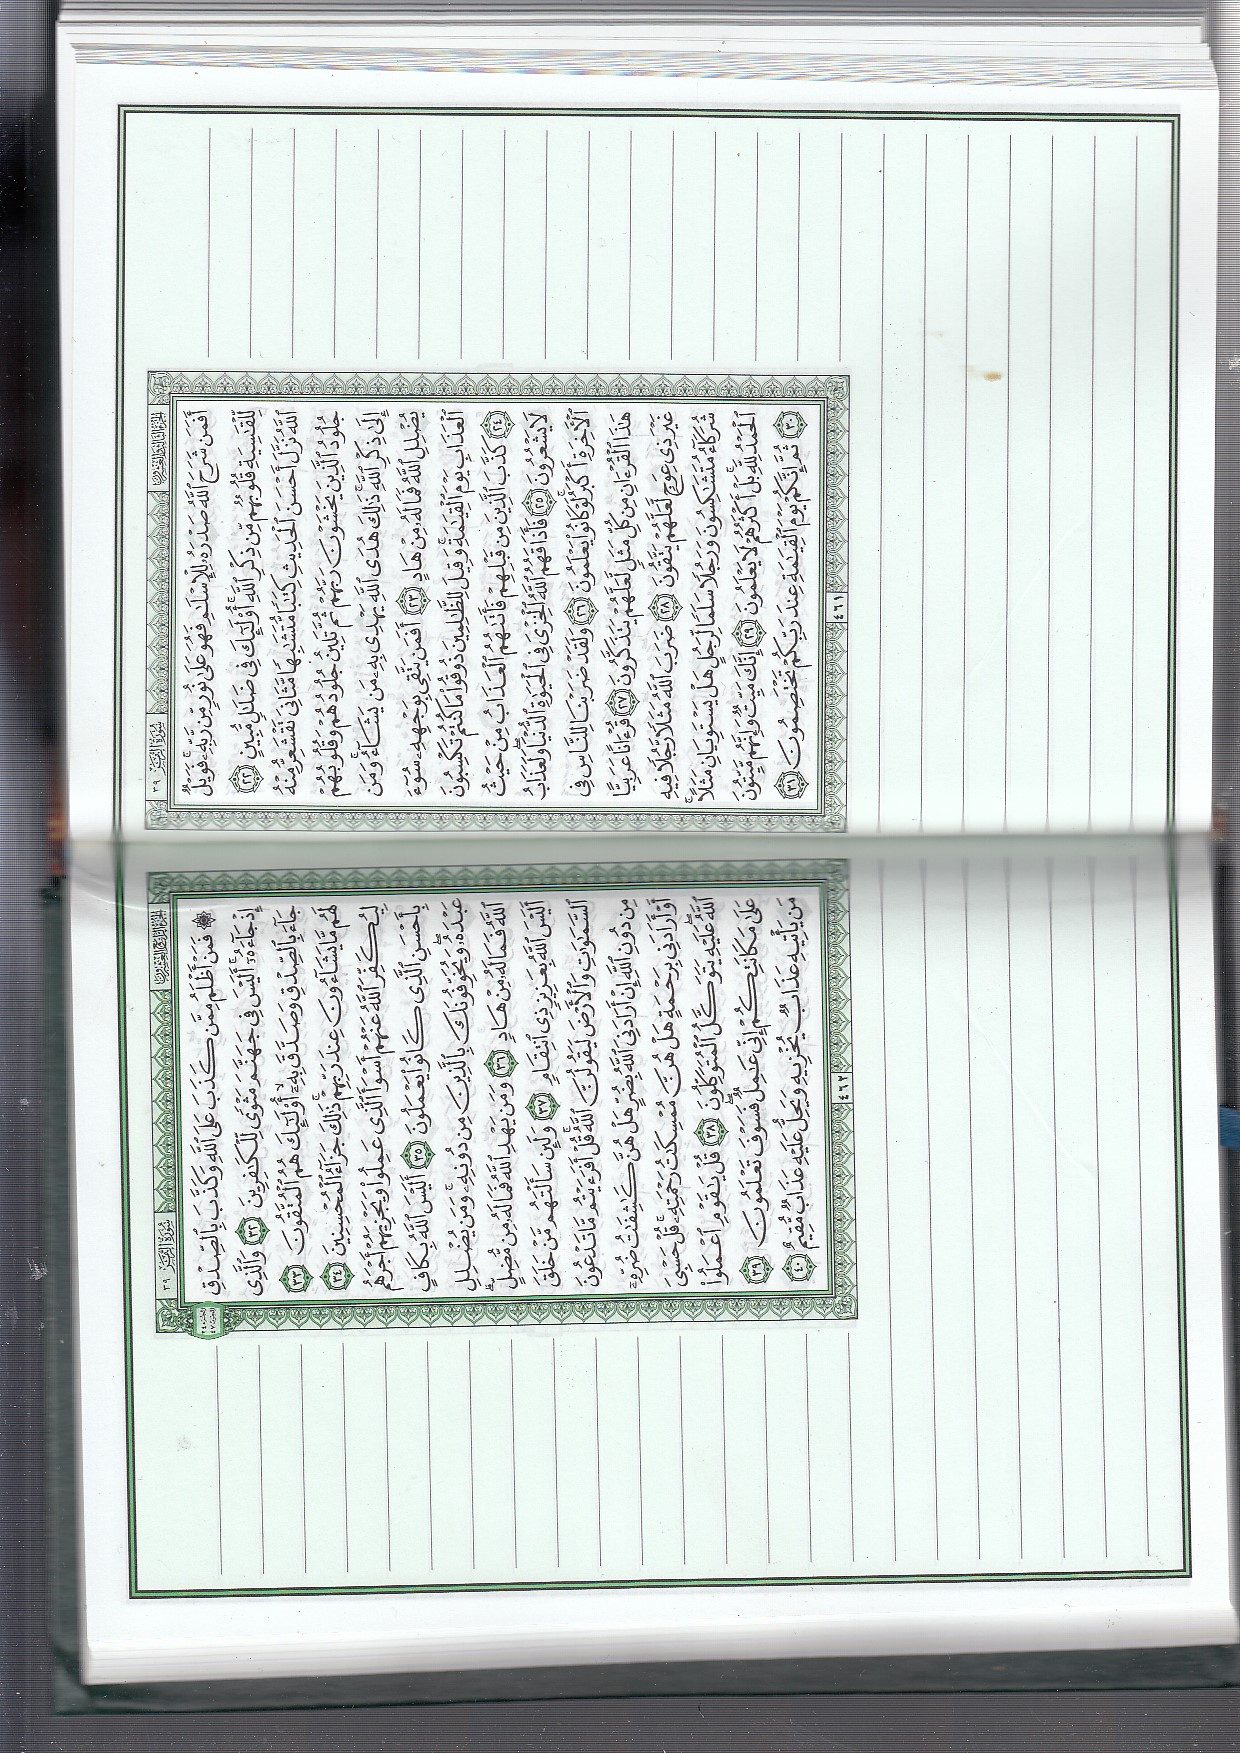 سورة الزمر ٣٩
الجزء الثالث والعشرون
أَفَمَن شَرَحَ ٱللَّهُ صَدْرَهُۥ لِلْإِسْلَٰمِ فَهُوَ عَلَىٰ نُورٍ مِّن رَّبِّهِۦ ۚ فَوَيْلٌ
لِّلْقَٰسِيَةِ قُلُوبُهُم مِّن ذِكْرِ ٱللَّهِ ۚ أُو۟لَٰٓئِكَ فِى ضَلَٰلٍ مُّبِينٍ ٢٢
ٱللَّهُ نَزَّلَ أَحْسَنَ ٱلْحَدِيثِ كِتَٰبًا مُّتَشَٰبِهًا مَّثَانِىَ تَقْشَعِرُّ مِنْهُ
جُلُودُ ٱلَّذِينَ يَخْشَوْنَ رَبَّهُمْ ثُمَّ تَلِينُ جُلُودُهُمْ وَقُلُوبُهُمْ
إِلَىٰ ذِكْرِ ٱللَّهِ ۚ ذَٰلِكَ هُدَى ٱللَّهِ يَهْدِى بِهِۦ مَن يَشَآءُ ۚ وَمَن
يُضْلِلِ ٱللَّهُ فَمَا لَهُۥ مِنْ هَادٍ ٢٣ أَفَمَن يَتَّقِى بِوَجْهِهِۦ سُوٓءَ
ٱلْعَذَابِ يَوْمَ ٱلْقِيَٰمَةِ ۚ وَقِيلَ لِلظَّٰلِمِينَ ذُوقُوا۟ مَا كُنتُمْ تَكْسِبُونَ
٢٤ كَذَّبَ ٱلَّذِينَ مِن قَبْلِهِمْ فَأَتَىٰهُمُ ٱلْعَذَابُ مِنْ حَيْثُ
لَا يَشْعُرُونَ ٢٥ فَأَذَاقَهُمُ ٱللَّهُ ٱلْخِزْىَ فِى ٱلْحَيَوٰةِ ٱلدُّنْيَا ۖ وَلَعَذَابُ
ٱلْءَاخِرَةِ أَكْبَرُ ۚ لَوْ كَانُوا۟ يَعْلَمُونَ ٢٦ وَلَقَدْ ضَرَبْنَا لِلنَّاسِ فِى
هَٰذَا ٱلْقُرْءَانِ مِن كُلِّ مَثَلٍ لَّعَلَّهُمْ يَتَذَكَّرُونَ ٢٧ قُرْءَانًا عَرَبِيًّا
غَيْرَ ذِى عِوَجٍ لَّعَلَّهُمْ يَتَّقُونَ ٢٨ ضَرَبَ ٱللَّهُ مَثَلًا رَّجُلًا فِيهِ
شُرَكَآءُ مُتَشَٰكِسُونَ وَرَجُلًا سَلَمًا لِّرَجُلٍ هَلْ يَسْتَوِيَانِ مَثَلًا ۚ
ٱلْحَمْدُ لِلَّهِ ۚ بَلْ أَكْثَرُهُمْ لَا يَعْلَمُونَ ٢٩ إِنَّكَ مَيِّتٌ وَإِنَّهُم مَّيِّتُونَ
٣٠ ثُمَّ إِنَّكُمْ يَوْمَ ٱلْقِيَٰمَةِ عِندَ رَبِّكُمْ تَخْتَصِمُونَ ٣١
٤٦١
سورة الزمر ٣٩
الجزء الرابع والعشرون
۞ فَمَنْ أَظْلَمُ مِمَّن كَذَبَ عَلَى ٱللَّهِ وَكَذَّبَ بِٱلصِّدْقِ
إِذْ جَآءَهُۥٓ ۚ أَلَيْسَ فِى جَهَنَّمَ مَثْوًى لِّلْكَٰفِرِينَ ٣٢ وَٱلَّذِى
جَآءَ بِٱلصِّدْقِ وَصَدَّقَ بِهِۦٓ ۙ أُو۟لَٰٓئِكَ هُمُ ٱلْمُتَّقُونَ ٣٣
لَهُم مَّا يَشَآءُونَ عِندَ رَبِّهِمْ ۚ ذَٰلِكَ جَزَآءُ ٱلْمُحْسِنِينَ ٣٤
لِيُكَفِّرَ ٱللَّهُ عَنْهُمْ أَسْوَأَ ٱلَّذِى عَمِلُوا۟ وَيَجْزِيَهُمْ أَجْرَهُم
بِأَحْسَنِ ٱلَّذِى كَانُوا۟ يَعْمَلُونَ ٣٥ أَلَيْسَ ٱللَّهُ بِكَافٍ
عَبْدَهُۥ ۖ وَيُخَوِّفُونَكَ بِٱلَّذِينَ مِن دُونِهِۦ ۚ وَمَن يُضْلِلِ
ٱللَّهُ فَمَا لَهُۥ مِنْ هَادٍ ٣٦ وَمَن يَهْدِ ٱللَّهُ فَمَا لَهُۥ مِن مُّضِلٍّ ۗ
أَلَيْسَ ٱللَّهُ بِعَزِيزٍ ذِى ٱنتِقَامٍ ٣٧ وَلَئِن سَأَلْتَهُم مَّنْ خَلَقَ
ٱلسَّمَٰوَٰتِ وَٱلْأَرْضَ لَيَقُولُنَّ ٱللَّهُ ۚ قُلْ أَفَرَءَيْتُم مَّا تَدْعُونَ
مِن دُونِ ٱللَّهِ إِنْ أَرَادَنِىَ ٱللَّهُ بِضُرٍّ هَلْ هُنَّ كَٰشِفَٰتُ ضُرِّهِۦٓ
أَوْ أَرَادَنِى بِرَحْمَةٍ هَلْ هُنَّ مُمْسِكَٰتُ رَحْمَتِهِۦ ۚ قُلْ حَسْبِىَ
ٱللَّهُ ۖ عَلَيْهِ يَتَوَكَّلُ ٱلْمُتَوَكِّلُونَ ٣٨ قُلْ يَٰقَوْمِ ٱعْمَلُوا۟
عَلَىٰ مَكَانَتِكُمْ إِنِّى عَٰمِلٌ ۖ فَسَوْفَ تَعْلَمُونَ ٣٩
مَن يَأْتِيهِ عَذَابٌ يُخْزِيهِ وَيَحِلُّ عَلَيْهِ عَذَابٌ مُّقِيمٌ ٤٠
٤٦٢